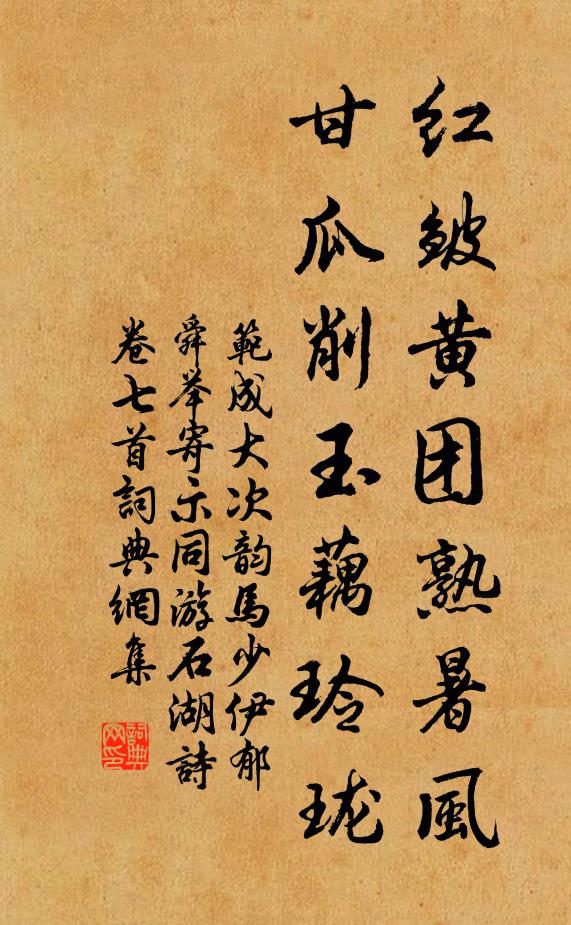 红皱黄团熟暑風
甘瓜削玉藕玲珑
範成大次韵馬少伊郁
舜举寄示同游石湖詩
卷七首詞典網集
詞典
网印